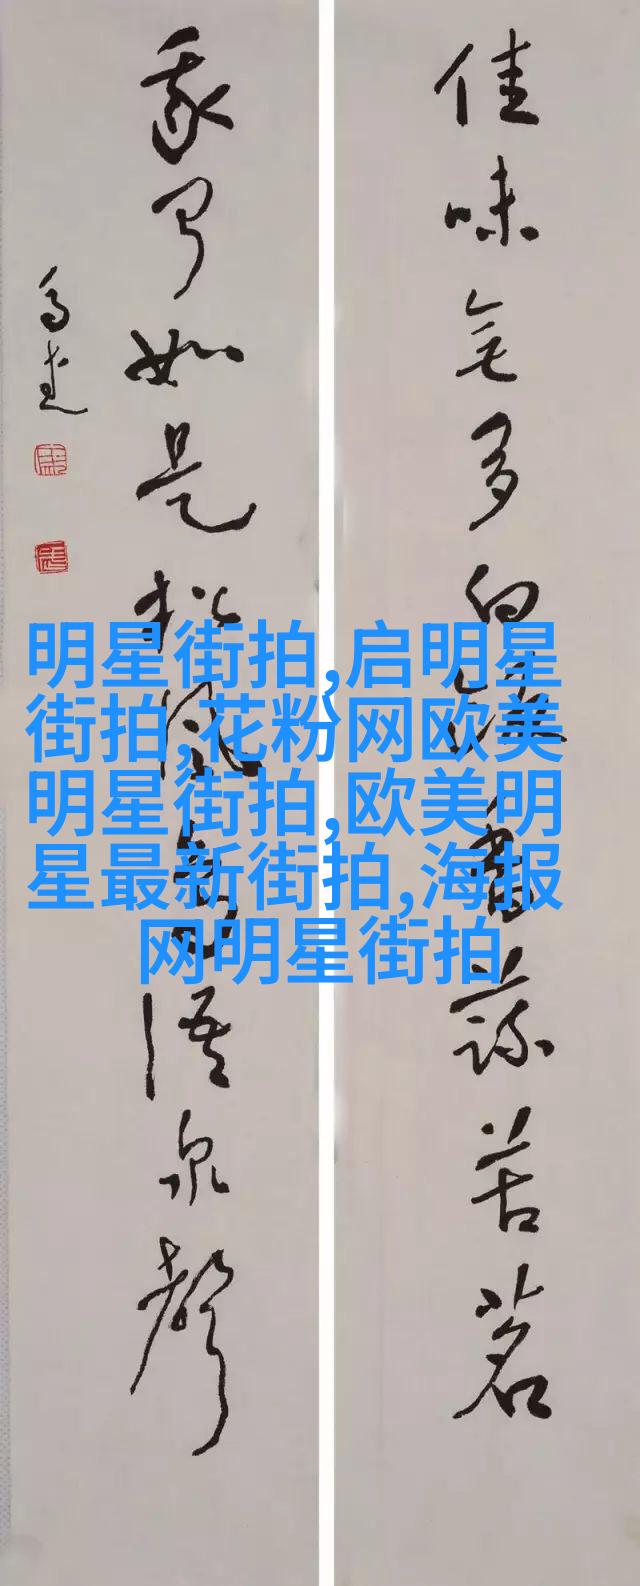 佳味无多白饭香蔬苦茗
我闻如是松风鸟语泉声
明星街拍,启明星
街拍,花粉网欧美
明星街拍,欧美明
星最新街拍,海报
网明星街拍